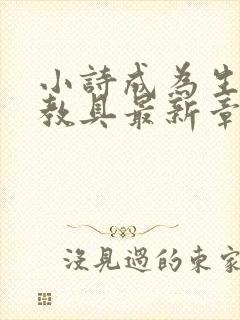 小詩成為生
教具最新章
沒見過的東家